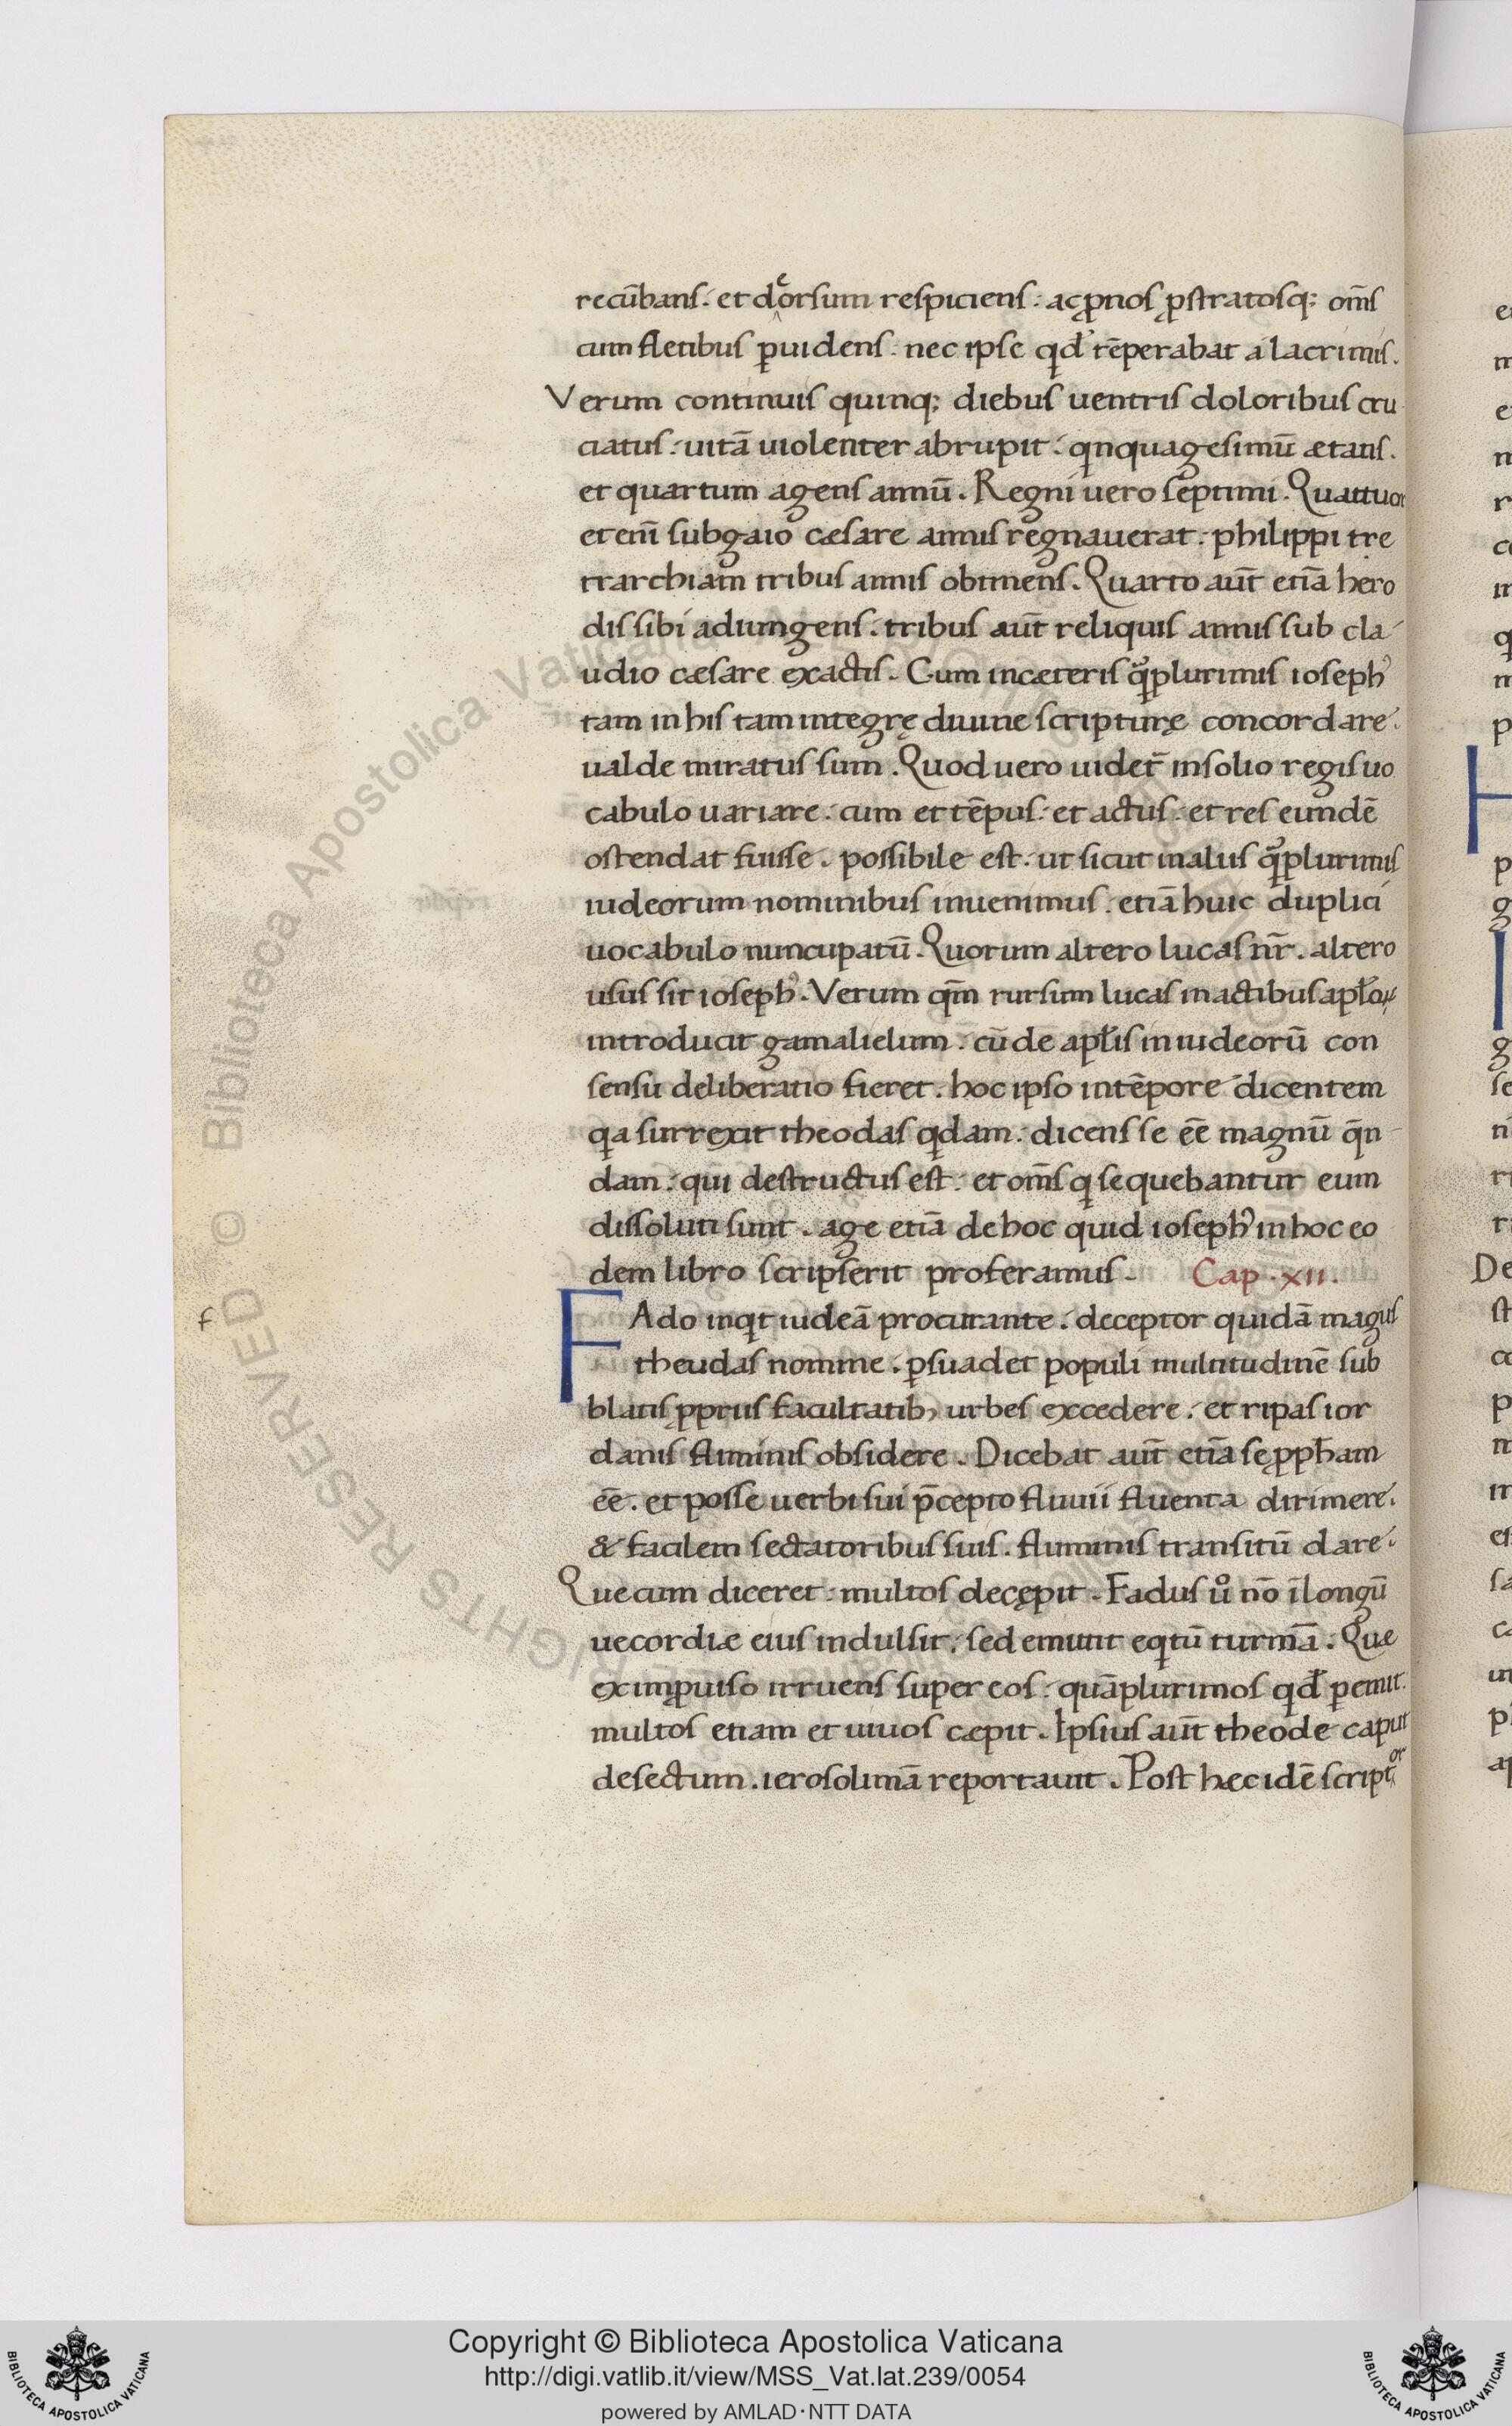 recūbans. et deorsum respiciens. ac ꝓnos ꝓstratosq; om̄s
cum fletibus ꝑuidens. nec ipse qd' tēperabat a lacrimis.
Verum continuis quinq; diebus uentris doloribus cru
ciatus. uitā uiolenter abrupit. qnquagesimū ætatis.
et quartum agens annū. Regni uero septimi. Quattuor
etenī sub gaio cæsare annis regnauerat. philippi tre
trarchiam tribus annis obtinens. Quarto aut̄ etiā hero
dis sibi adiungens. tribus aut̄ reliquis annis sub cla
udio cæsare exactis. Cum in cæteris qͣꝫplurimis ioseph'
tam in his tam integrę diuine scripturę concordare.
ualde miratus sum. Quod uero uidet̄ in solio regis uo
cabulo uariare. cum et tēpus. et actus. et res eundē
ostendat fuisse. possibile est. ut sicut in alus qͣꝫplurimis
iudeorum nominibus inuenimus. etiā huic duplici
uocabulo nuncupatū. Quorum altero lucas nr̄. altero
usus sit ioseph'. Verum qm̄ rursum lucas in actibus apl'oꝝ
introducit gamalielum. cū de apl'is in iudeorū con
sensu deliberatio fieret. hoc ipso in tēpore dicentem
qa surrexit theodas qdam. dicens se eē magnū qn̄
dam. qui destructus est. et om̄s q sequebantur eum
dissoluti sunt. age etiā de hoc quid ioseph' in hoc eo
dem libro scripserit proferamus. Cap. xii.
f
FAdo inqt iudeā procurante. deceptor quidā magus
theudas nomine. ꝑsuadet populi multitudinē sub
blatis ꝓprus facultatib, urbes excedere. et ripas ior
danis fluminis obsidere. Dicebat aut̄ etiā se ꝓpham
eē. et posse uerbi sui p̄cepto fluuii fluenta dirimere.
& facilem sectatoribus suis. fluminis transitū dare.
Que cum diceret. multos decępit. Fadus uͦ nō ī longū
uecordiæ eius indulsit. sed emittit eqtū turmā. Quæ
ex imꝓuiso irruens super eos. quāplurimos qd' ꝑemit.
multos etiam et uiuos cæpit. Ipsius aut̄ theode caput
desectum. ierosolimā reportauit. Post hæc idē scriptor
Copyright © Biblioteca Apostolica Vaticana
http://digi.vatlib.it/view/MSS_Vat.lat.239/0054
powered by AMLAD·NTT DATA